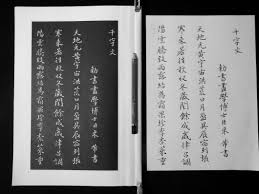 千字文
勅書畫學博士臣米芾書
天地元黃宇宙洪荒日月盈昃辰宿列張
寒來暑往秋收冬藏閏餘成歲律呂調
陽雲騰致雨露結為霜菓珍李柰菜重
千字文
勅書畫學博士臣米芾書
天地元黃宇宙洪荒日月盈昃辰宿列張
寒來暑往秋收冬藏閏餘成歲律呂調
陽雲騰致雨露結為霜菓珍李柰菜重